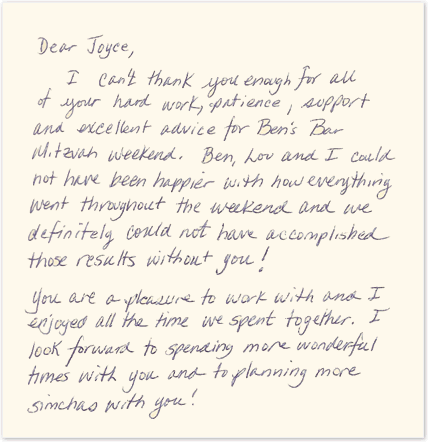 Dear Joyce,
I can't thank you enough for all
of your hard work, patience, support
and excellent advice for Ben's Bar
Mitzvah weekend. Ben, Lou and I could
not have been happier with how everything
went throughout the weekend and we
definitely could not have accomplished
those results without you!
You are a pleasure to work with and I
enjoyed all the time we spent together. I
look forward to spending more wonderful
times with you and to planning more
simchas with you!